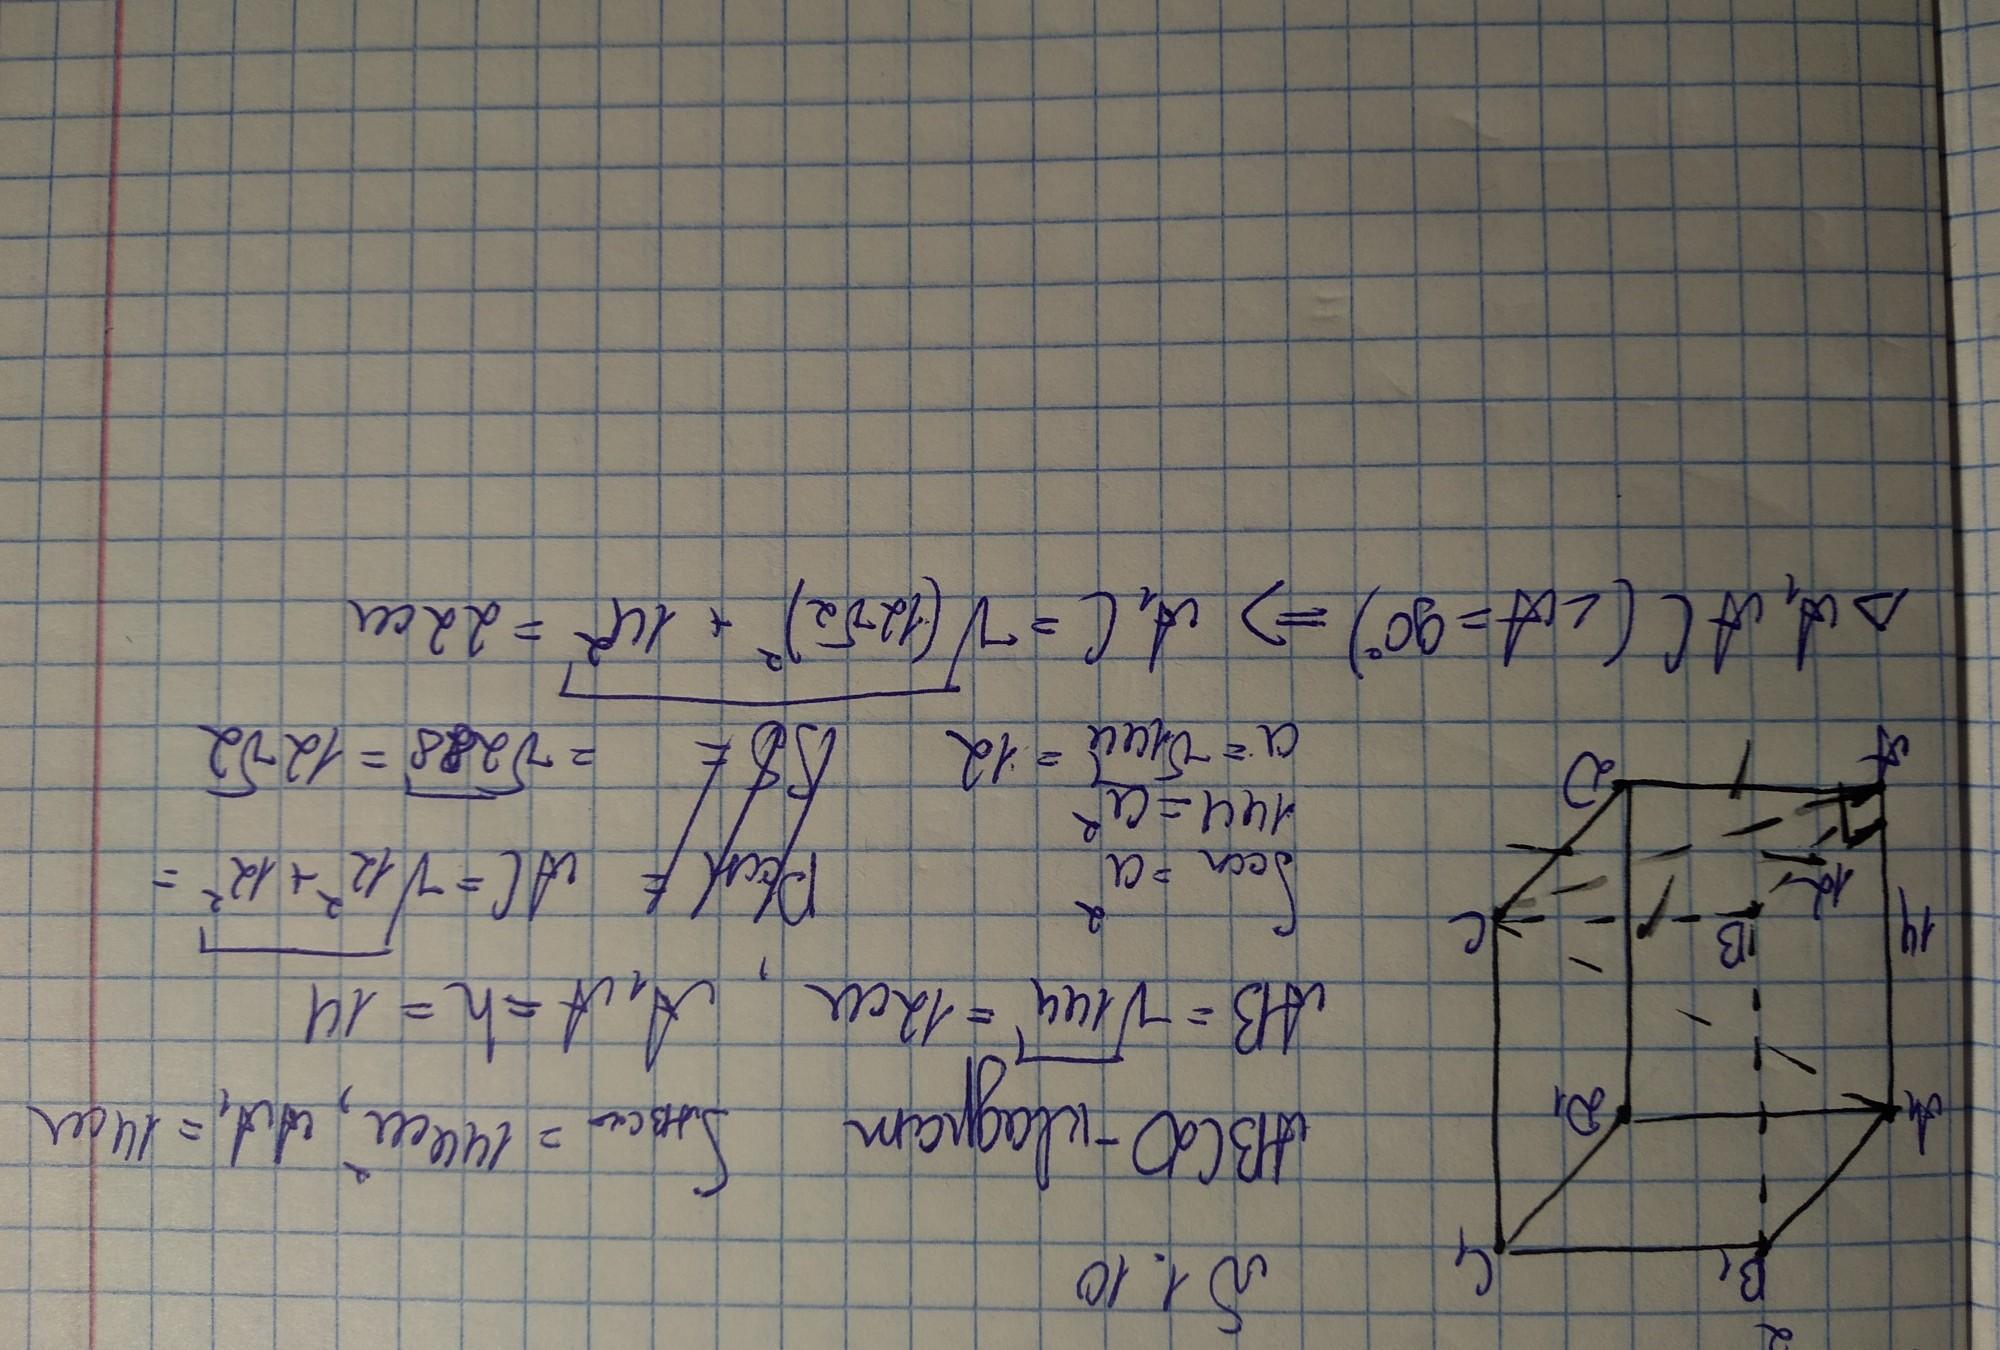 № 1.10
ABCD - квадрат S_ABCD = 144см², AA₁ = 14см
AB = √144 = 12см, A₁A = h = 14
Sосн = a²
144 = a²
a = √144 = 12
AC = √12² + 12² =
= √288 = 12√2
△A₁AC (∠A = 90°) => A₁C = √(12√2)² + 14² = 22см
B₁
C₁
A₁
D₁
14
B
12
C
A
D
2